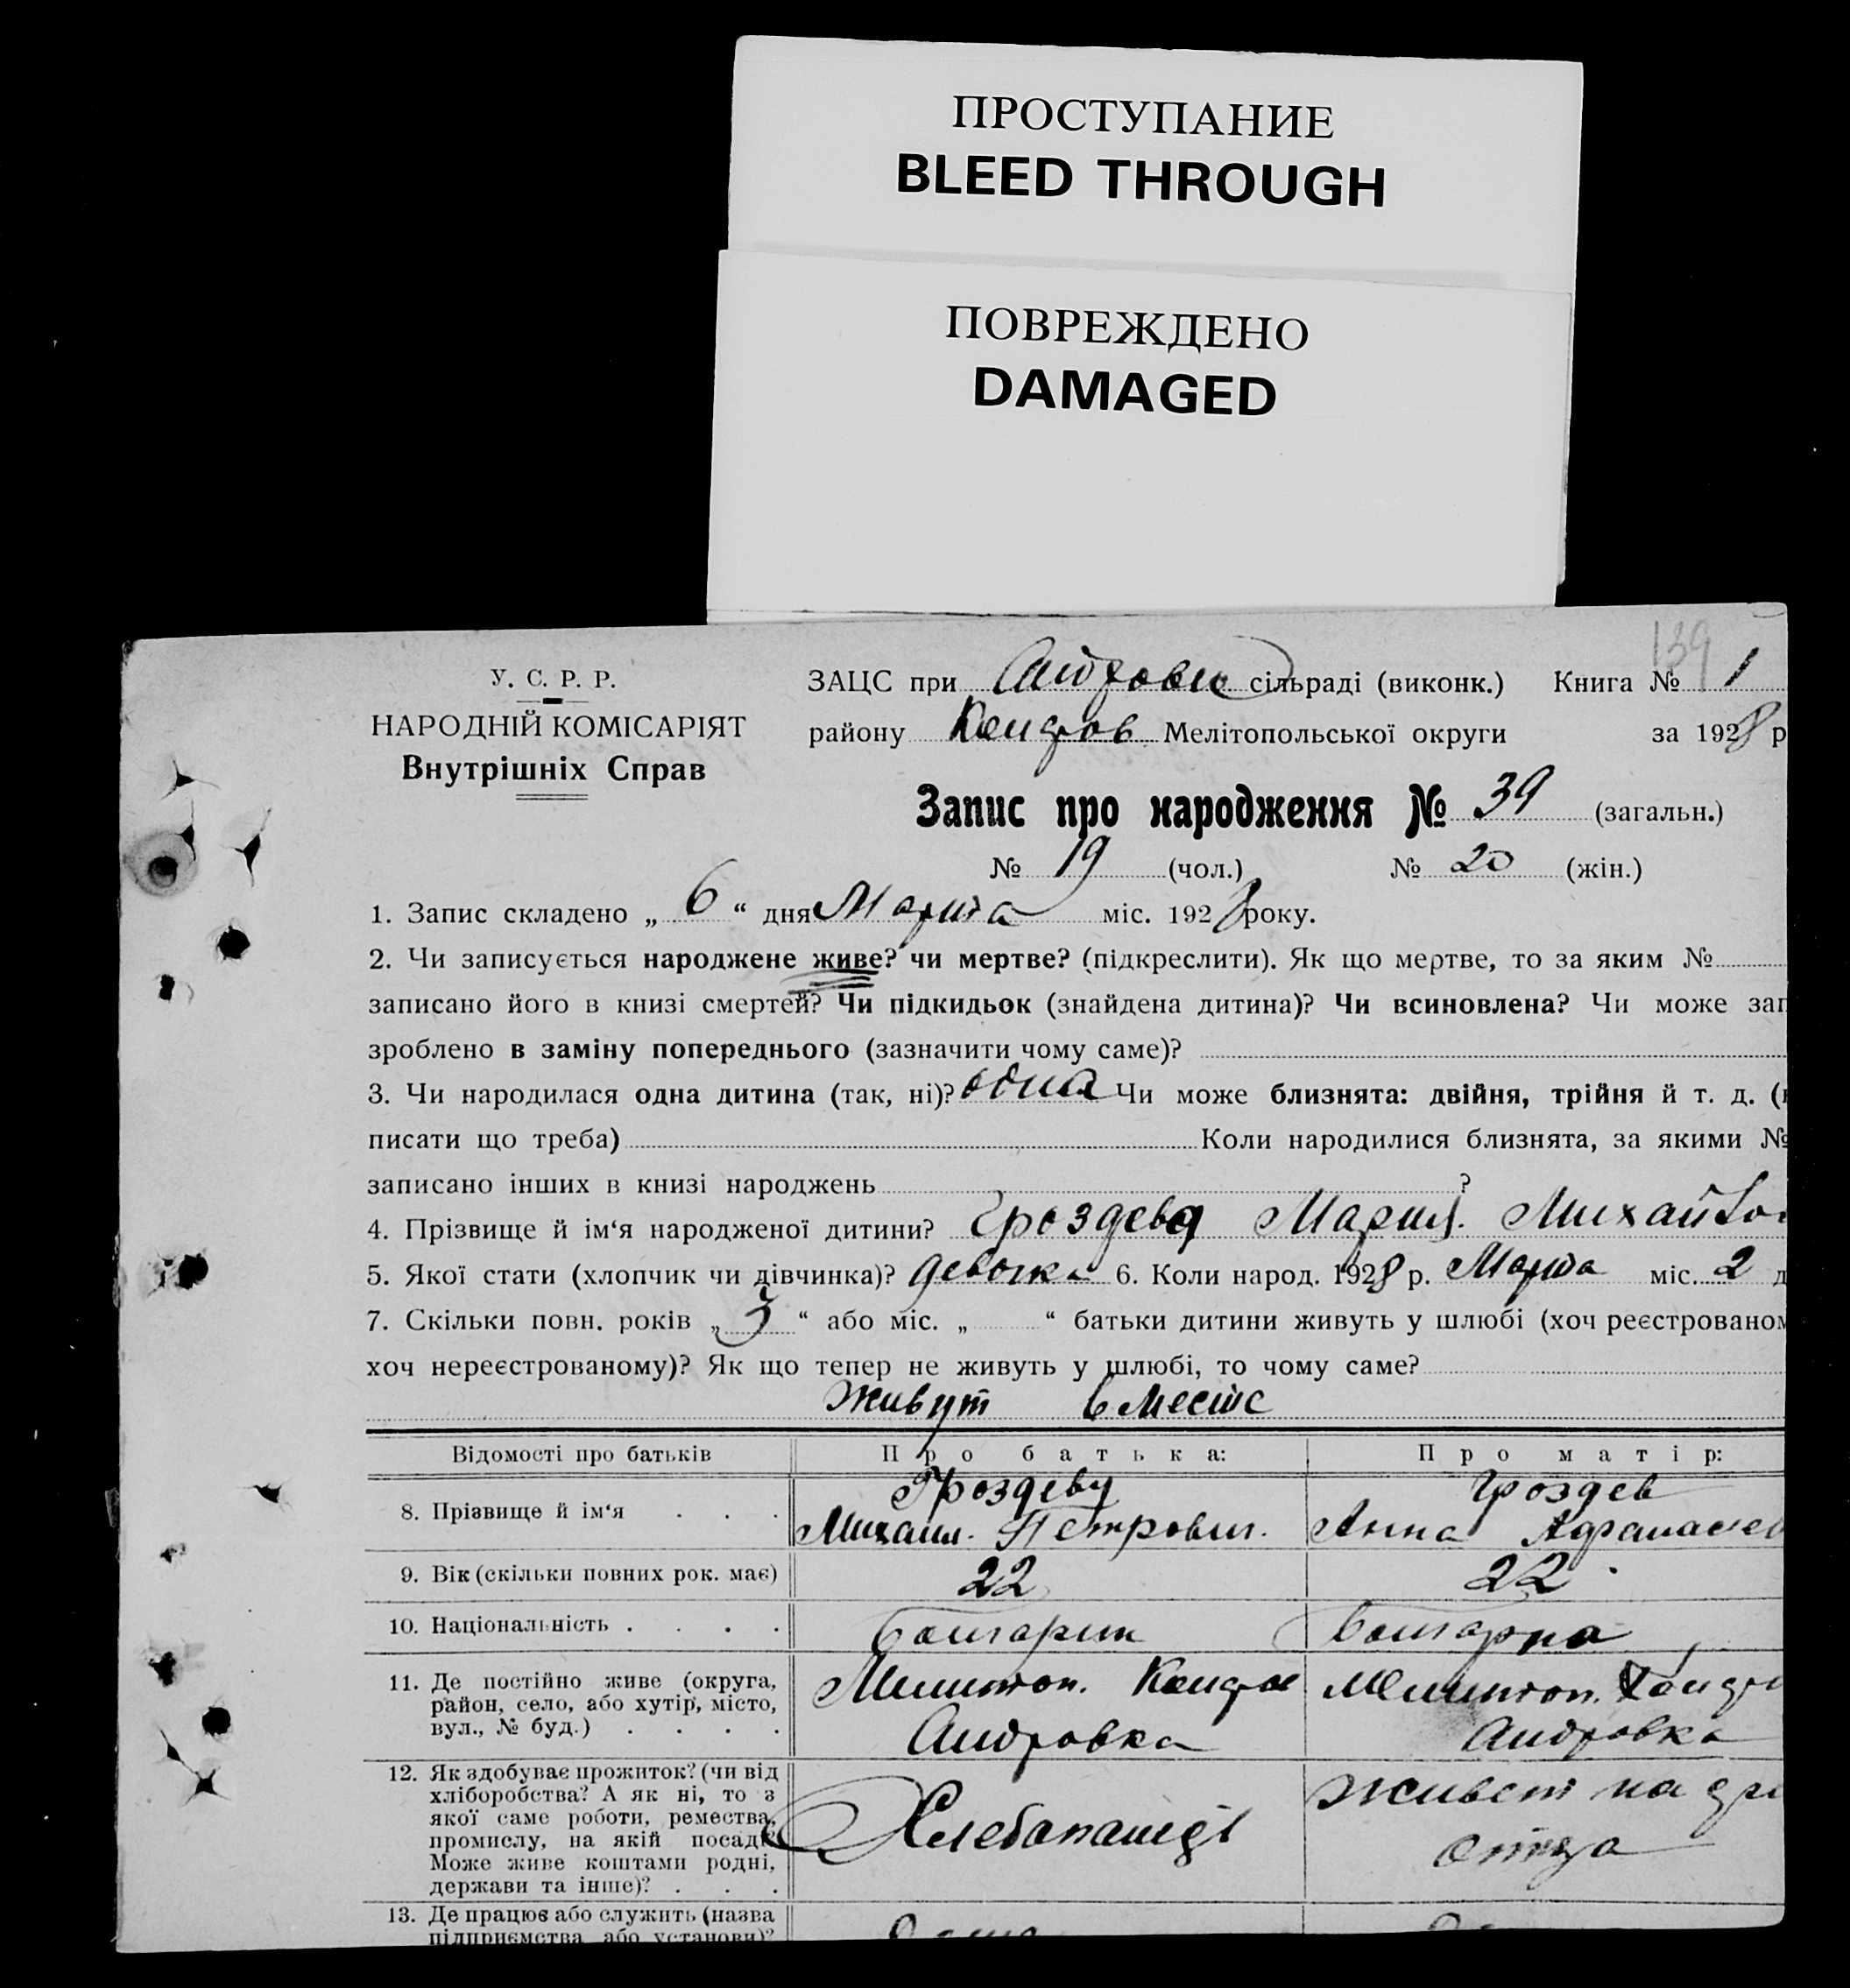 ПРОСТУПАНИЕ
BLEED THROUGH
ПОВРЕЖДЕНО
DAMAGED
139
У. С. Р. Р.
НАРОДНІЙ КОМІСАРІЯТ
Внутрішніх Справ
ЗАЦС при сільраді (виконк.) Книга № 1
району Мелітопольської округи за 1928 р
Запис про народження № 39 (загальн.)
№ 19 (чол.) № 20 (жін.)
1. Запис складено „ 6 “ дня Марта міс. 1928 року.
2. Чи записується народжене живе? чи мертве? (підкреслити). Як що мертве, то за яким №
записано його в книзі смертей? Чи підкидьок (знайдена дитина)? Чи всиновлена? Чи може зап
зроблено в заміну попереднього (зазначити чому саме)?
3. Чи народилася одна дитина (так, ні)? одна Чи може близнята: двійня, трійня й т. д. (
писати що треба) Коли народилися близнята, за якими №
записано інших в книзі народжень ?
4. Прізвище й ім‘я народженої дитини? Гроздева Мария Михайло
5. Якої стати (хлопчик чи дівчинка)? девочка 6. Коли народ. 1928 р. Марта міс. 2 д
7. Скільки повн. років „ 3 “ або міс. „ “ батьки дитини живуть у шлюбі (хоч реєстрованом
хоч нереєстрованому)? Як що тепер не живуть у шлюбі, то чому саме?
Живут вместе
Відомості про батьків Про батька: Про матір:
8. Прізвище й ім‘я . . . Гроздеву Гроздев
Михаил Петрович. Анна Афанасьев
9. Вік (скільки повних рок. має) 22 22
10. Національність . . . . болгарин болгарка
11. Де постійно живе (округа,
район, село, або хутір, місто,
вул., № буд.) . . . .
Мелитоп.
Андровка
Мелитоп.
Андровка
12. Як здобуває прожиток? (чи від
хліборобства? А як ні, то з
якої саме роботи, ремества,
промислу, на якій посаді?
Може живе коштами родні,
держави та інше)? . . .
живет на
13. Де працює або служить (назва
підприємства або установи)?